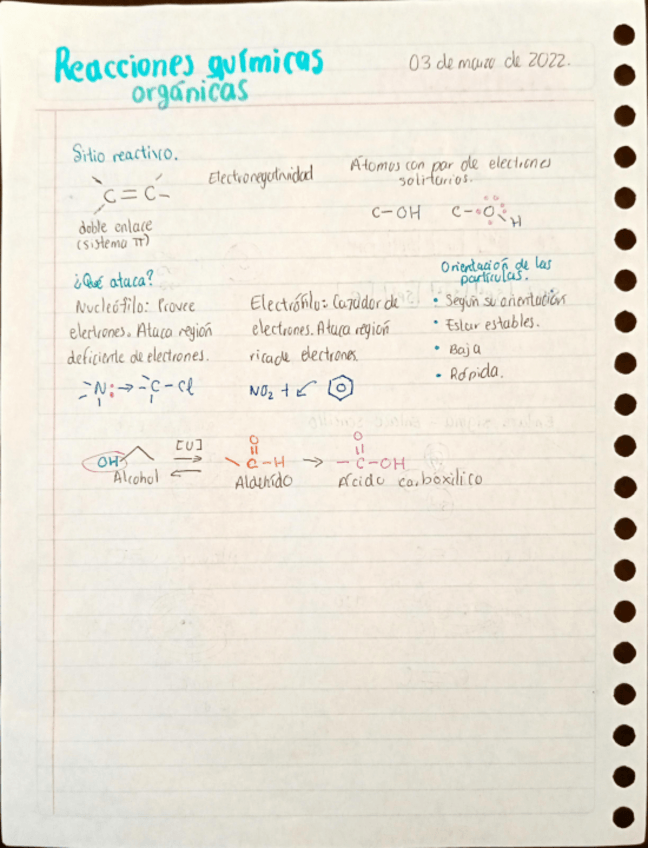 Reacciones químicas
orgánicas
03 de marzo de 2022.
Sitio reactivo.
C=C-
doble enlace
(sistema π)
Electronegatividad
Átomos con par de electrones
solitarios.
C-OH C-O-H
¿Qué ataca?
Nucleófilo: Provee
electrones. Ataca región
deficiente de electrones.
-N:→-C-Cl
Electrófilo: Cazador de
electrones. Ataca región
rica de electrones.
NO2 +
Orientación de las
partículas.
• Según su orientación
• Estar estables.
• Baja
• Rápida.
OH
Alcohol
O
C-H
Aldehído
→
O
-C-OH
Ácido carboxílico